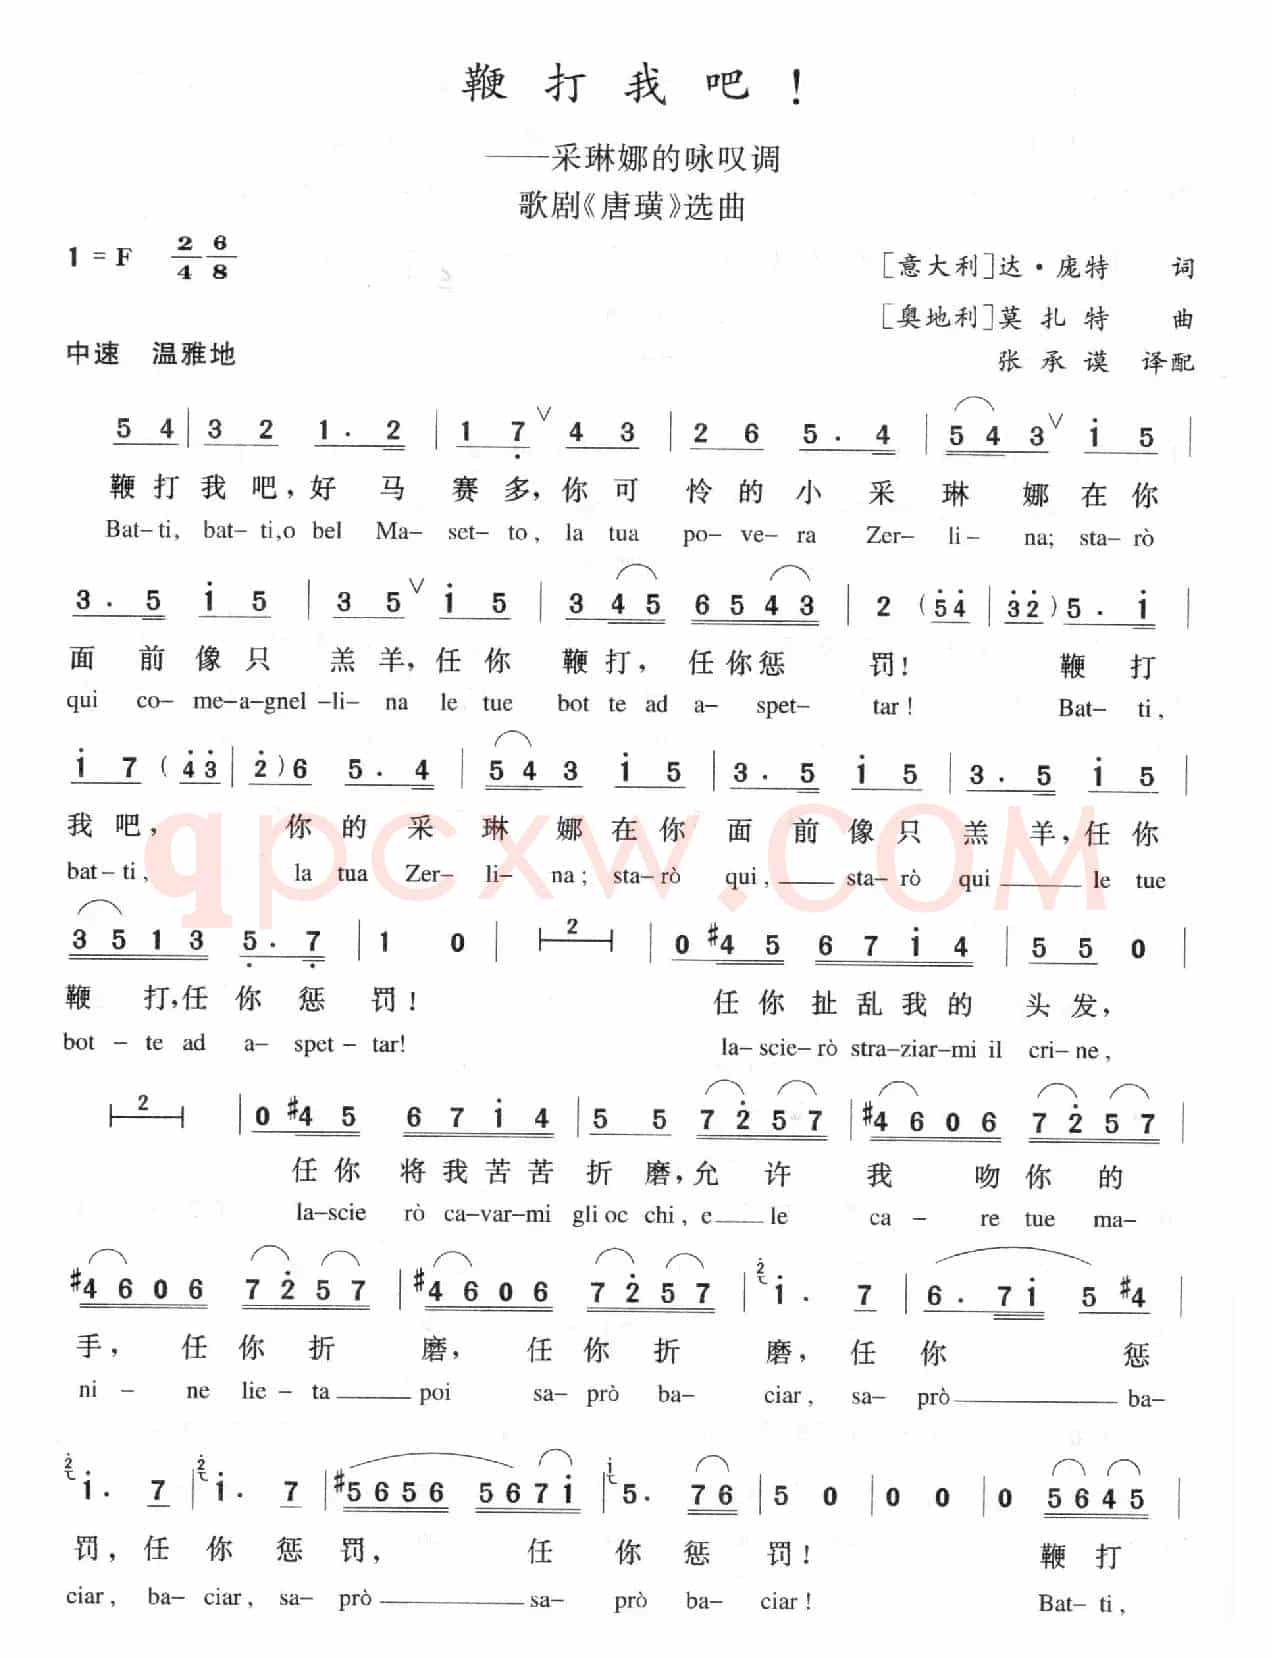 鞭打我吧！
——采琳娜的咏叹调
歌剧《唐璜》选曲
1 = F 2/4 6/8
[意大利]达·庞特 词
[奥地利]莫扎特 曲
中速 温雅地
张承谟 译配
5 4 | 3 2 1 . 2 | 1 7 ∨ 4 3 | 2 6 5 . 4 | 5 4 3 ∨ i 5 |
鞭打我吧，好马赛多，你可怜的小采琳娜在你
Bat–ti, bat–ti,o bel Ma– set–to, la tua po–ve–ra Zer–li– na; sta–rò
3 . 5 i 5 | 3 5 ∨ i 5 | 3 4 5 6 5 4 3 | 2 （5 4 | 3 2）5 . i |
面前像只羔羊，任你鞭打，任你惩罚！鞭打
qui co–me–a–gnel–li–na le tue bot te ad a–spet–tar! Bat–ti,
i 7 （4 3 | 2）6 5 . 4 | 5 4 3 i 5 | 3 . 5 i 5 | 3 . 5 i 5 |
我吧，你的采琳娜在你面前像只羔羊，任你
bat–ti, la tua Zer–li–na; sta–rò qui, sta–rò qui le tue
qpcxw.COM
3 5 1 3 5 . 7 | 1 0 | 2 | 0 #4 5 6 7 i 4 | 5 5 0 |
鞭打，任你惩罚！任你扯乱我的头发，
bot–te ad a–spet–tar! la–scie–rò stra–ziar–mi il cri–ne,
2 | 0 #4 5 6 7 i 4 | 5 5 7 2 5 7 | #4 6 0 6 7 2 5 7 |
任你将我苦苦折磨，允许我吻你的
la–scie rò ca–var–mi gli oc chi, e le ca – re tue ma–
#4 6 0 6 7 2 5 7 | #4 6 0 6 7 2 5 7 | 2 i . 7 | 6 . 7 i 5 #4 |
手，任你折磨，任你折磨，任你惩
ni – ne lie–ta poi sa–prò ba– ciar, sa–prò ba–
2 i . 7 | 2 i . 7 | #5 6 5 6 5 6 7 i | i 5 . 7 6 | 5 0 | 0 0 | 0 5 6 4 5 |
罚，任你惩罚，任你惩罚！鞭打
ciar, ba–ciar, sa–prò sa–prò ba–ciar! Bat–ti,